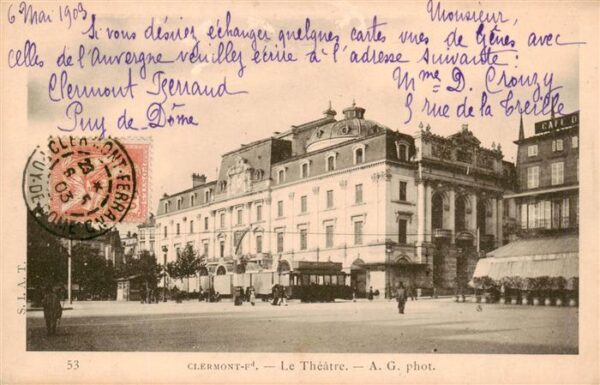 6 Mai 1903
Monsieur,
Si vous désirez échanger quelques cartes vues de Gênes avec
celles de l'Auvergne veuillez écrire à l'adresse suivante :
Clermont Ferrand
Puy de Dôme
Mme D. Crouzy
5 rue de la Treille
CLERMONT-FERRAND
PUY-DE-DÔME
03
CAFE D
S.L.A.T.
53
CLERMONT-Fd. — Le Théâtre. — A. G. phot.